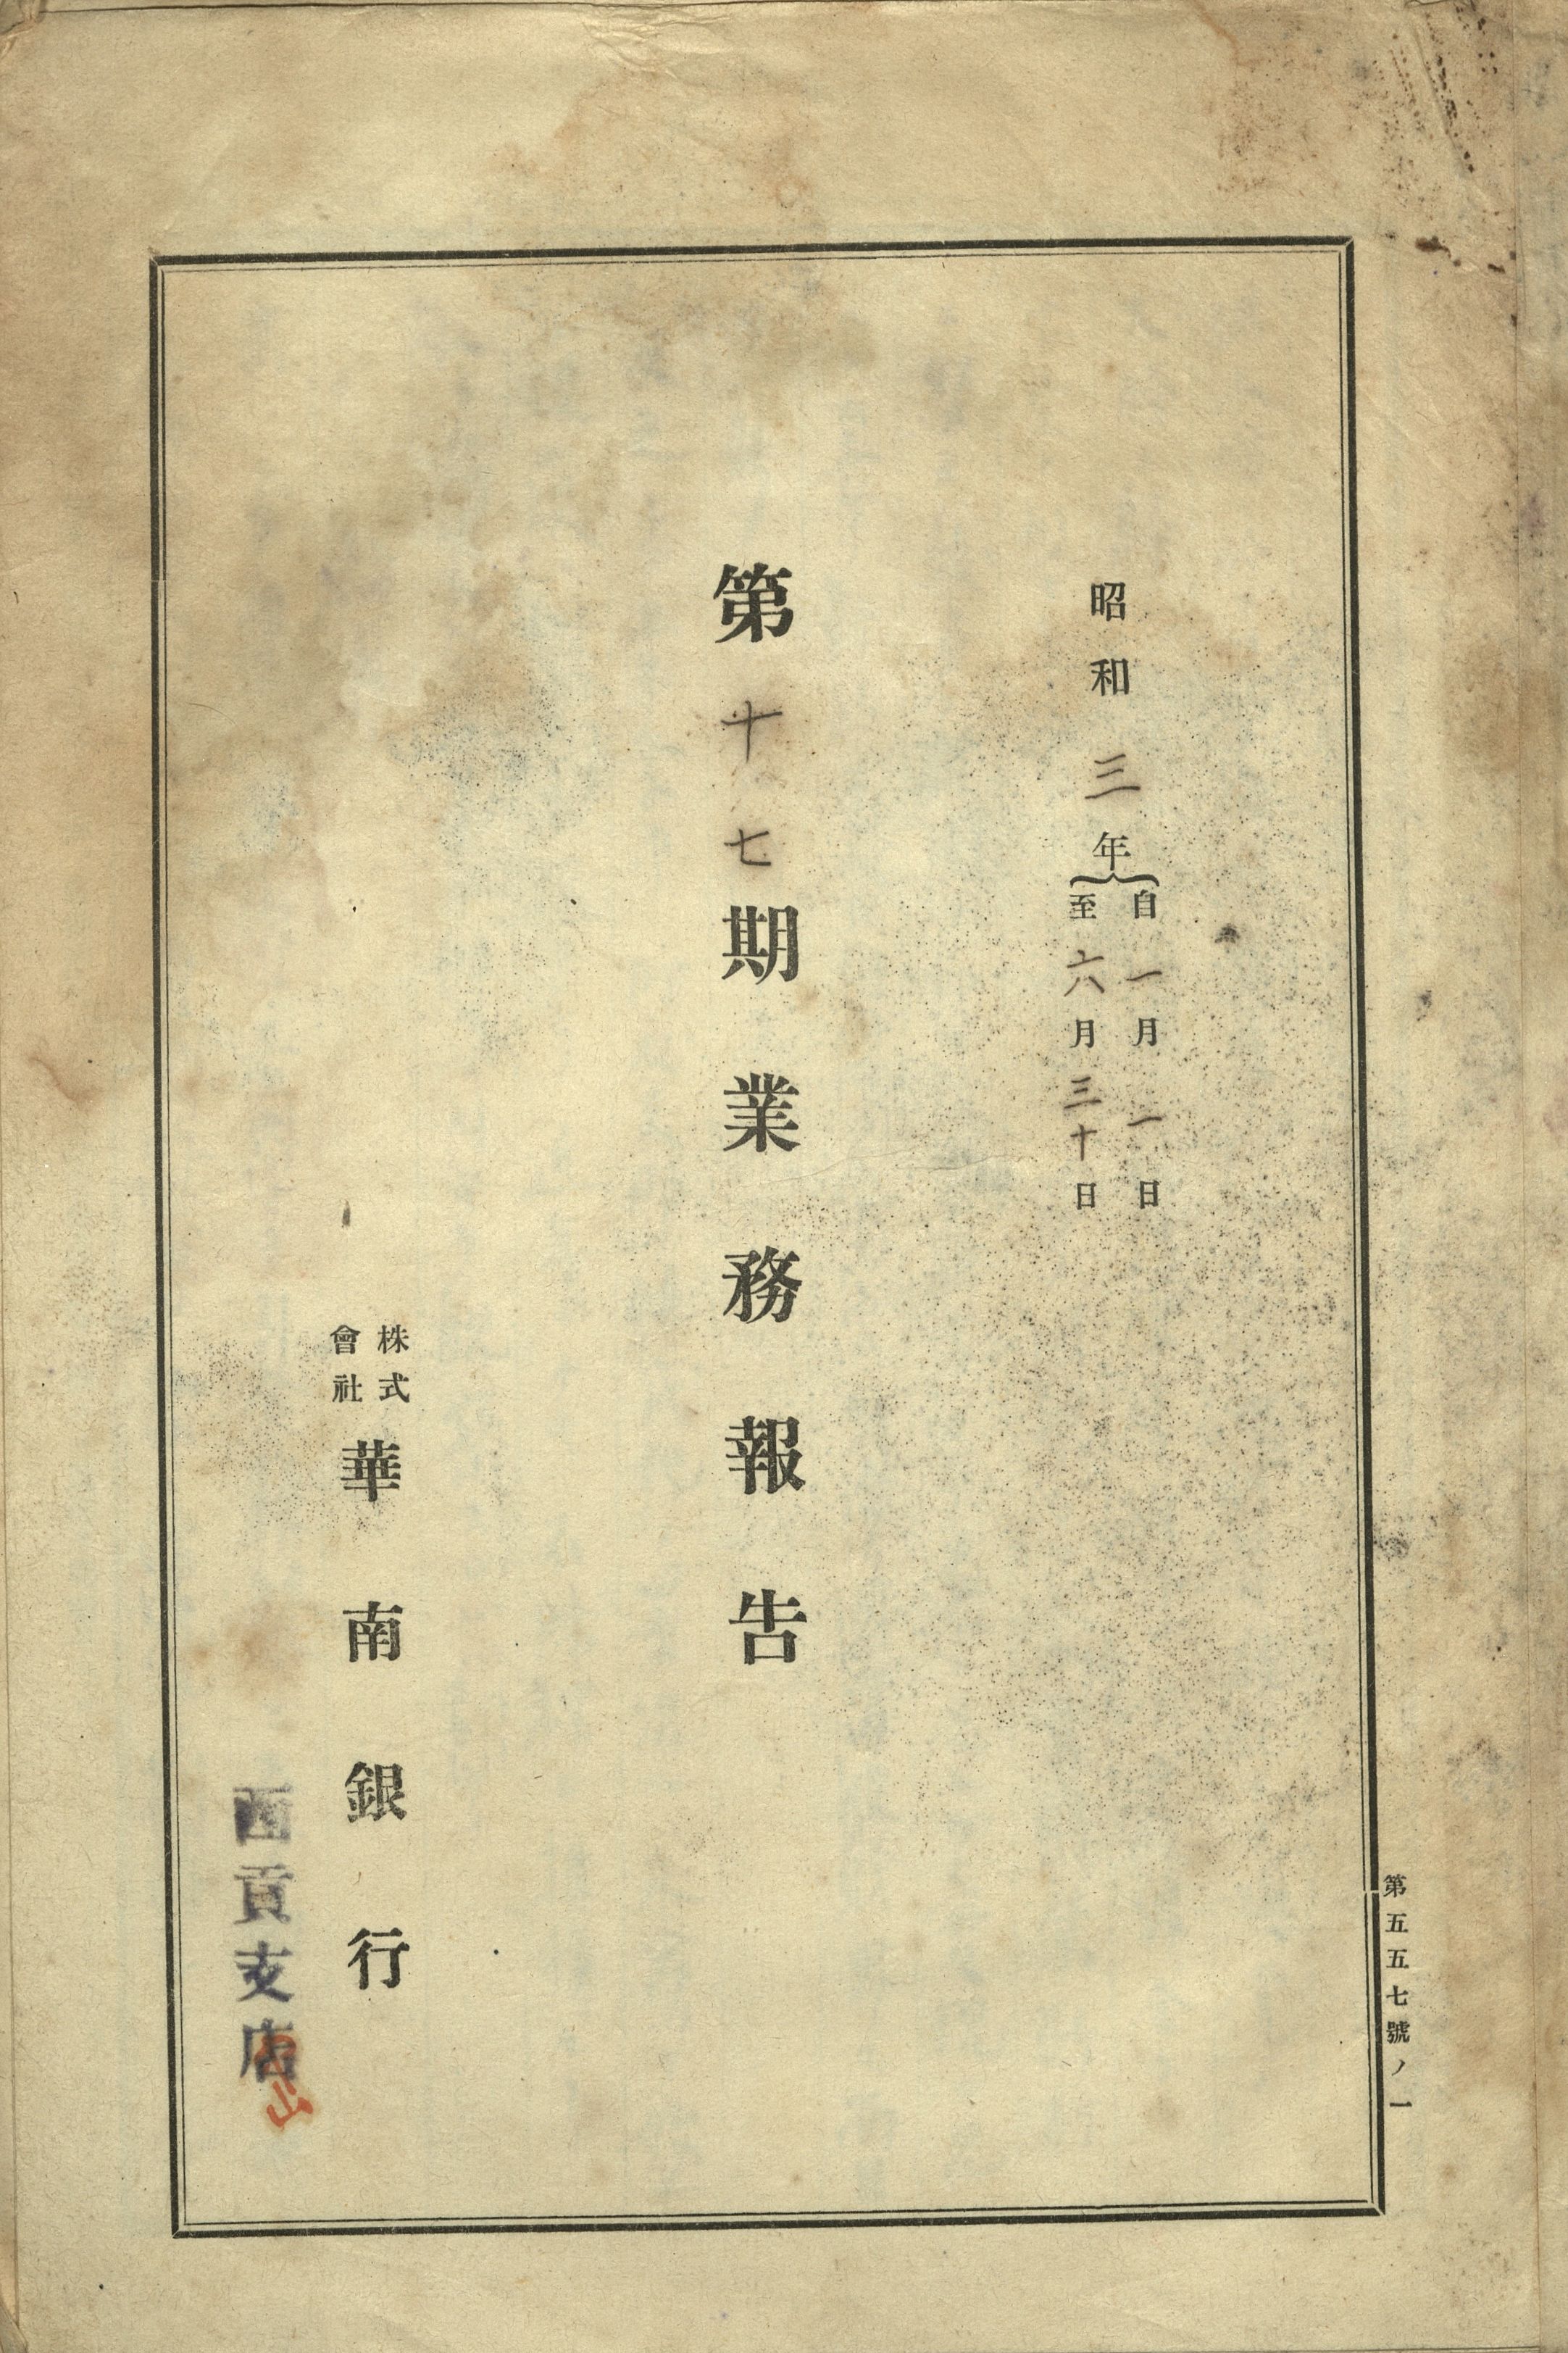 昭和三年
自一月一日
至六月三十日
第十七期業務報告
株式
會社
華南銀行
西貢支店
第五五七號ノ一